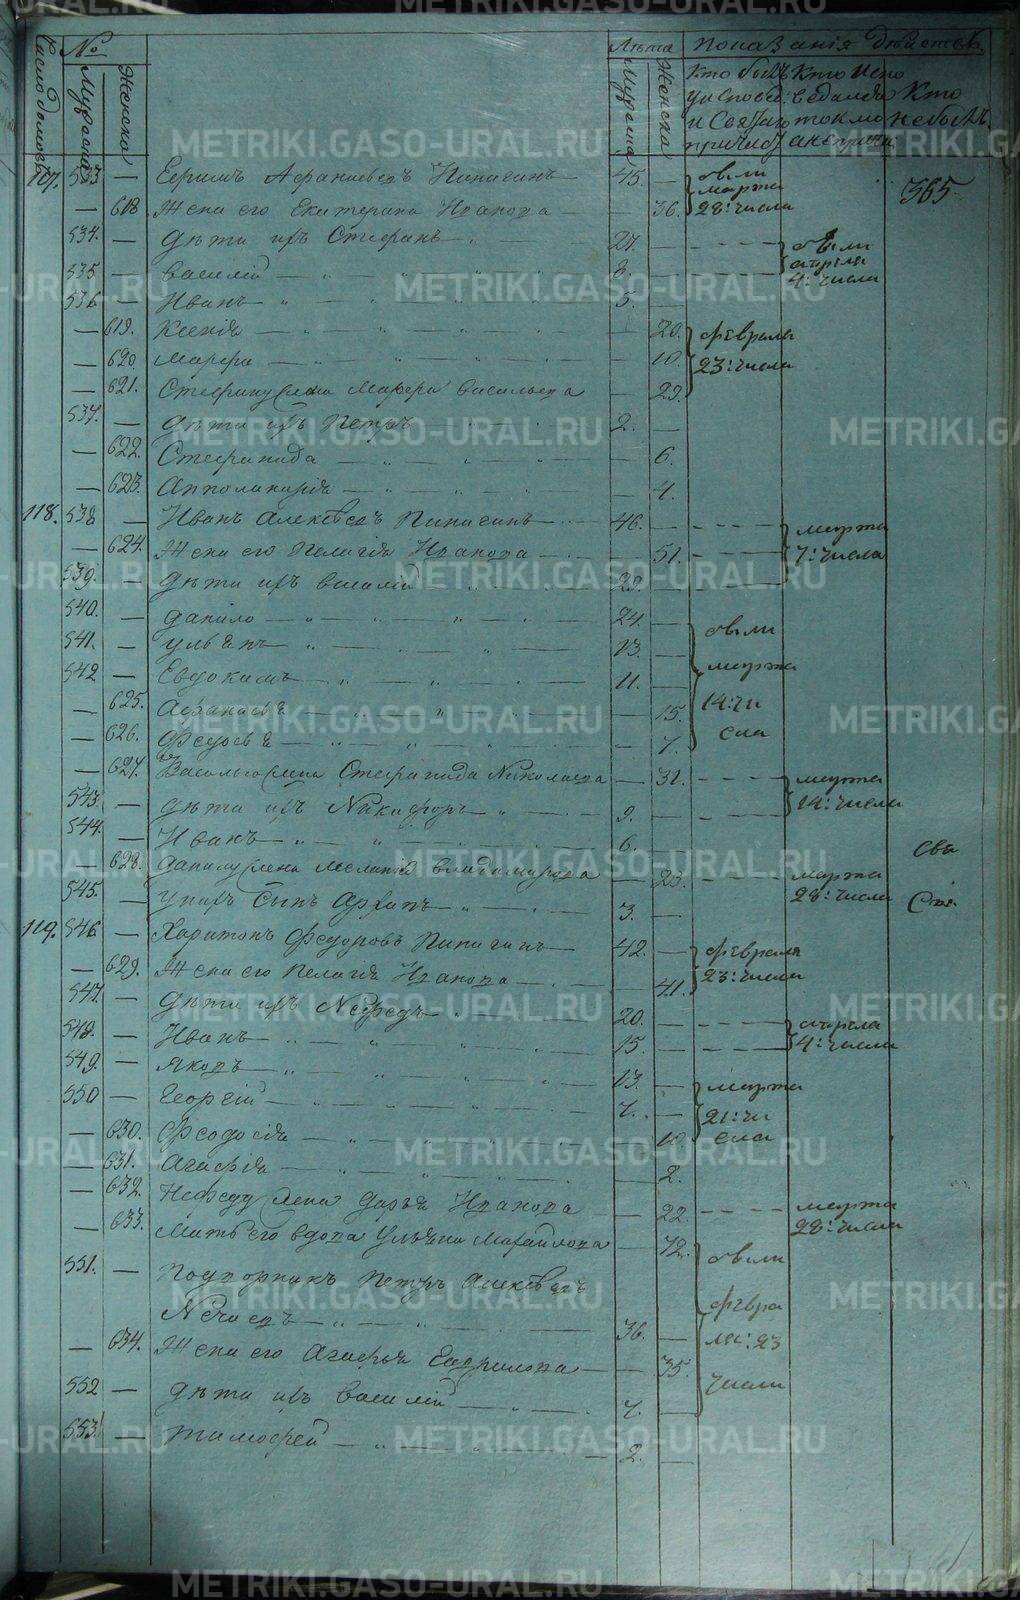 Число домовъ № Лѣта Показанія дѣйствъ
Мужеска Женска Мужеска Женска Кто былъ у исповѣди и Святаго причаст. Кто исповѣдался токмо а не причащ. Кто не былъ
117. 533 — Ефимъ Афанасьевъ Пинигинъ — 45. — были марта 28: числа 365
— 618 Жена его Екатерина Иванова — 36.
534. — Дѣти ихъ Стефанъ — 27. — были апреля 4: числа
535 — Василій — 8.
536 — Иванъ — 5. —
— 619. Ксенія — 20. февраля 23: числа
— 620. Марфа — 10.
— 621. Стефану жена Марфа Васильева — 29.
537. — Дѣти ихъ Петръ — 2. —
— 622. Стефанида — 6.
— 623. Апполинарія — 4.
118. 538 — Иванъ Алексѣевъ Пинигинъ — 46. — марта 7: числа
— 624. Жена его Пелагія Иванова — 51.
539. — Дѣти ихъ Василій — 29. —
540. — Данило — 24. — были марта 14: числа
541. — Ульянъ — 13. —
542 — Евдокимъ — 11. —
— 625. Афанасья — 15.
— 626. Федосья — 7.
— 627. Василью жена Стефанида Николаева — 31. марта 14: числа
543. — Дѣти ихъ Никифоръ — 9. —
544. — Иванъ — 6. —
— 628. Данилу жена Меланія Владимирова — 23. марта 28: числа
545. — У нихъ сынъ Архипъ — 3. —
119. 546 — Харитонъ Федоровъ Пинигинъ — 42. — февраля 23: числа
— 629. Жена его Пелагія Иванова — 41.
547. — Дѣти ихъ Нефедъ — 20. — апреля 4: числа
548. — Иванъ — 15. —
549. — Яковъ — 13. — марта 21: числа
550 — Георгій — 7. —
— 630. Феодосія — 10.
— 631. Агафія — 2.
— 632. Нефеду жена Дарья Иванова — 22. марта 28: числа
— 633. Мать его вдова Ульяна Михайлова — 72. были февраля: 23 числа
551. — Подпорникъ Петръ Алексѣевъ
— 36. —
— 634. Жена его Агафья Гаврилова — 35.
552 — Дѣти ихъ Василій — 7. —
553. — Тимофей — 2. —
METRIKI.GASO-URAL.RU